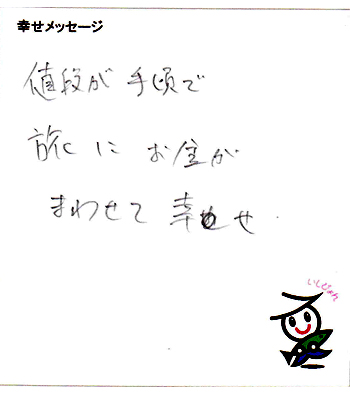 幸せメッセージ
値段が手頃で
旅にお金が
まわせて幸せ